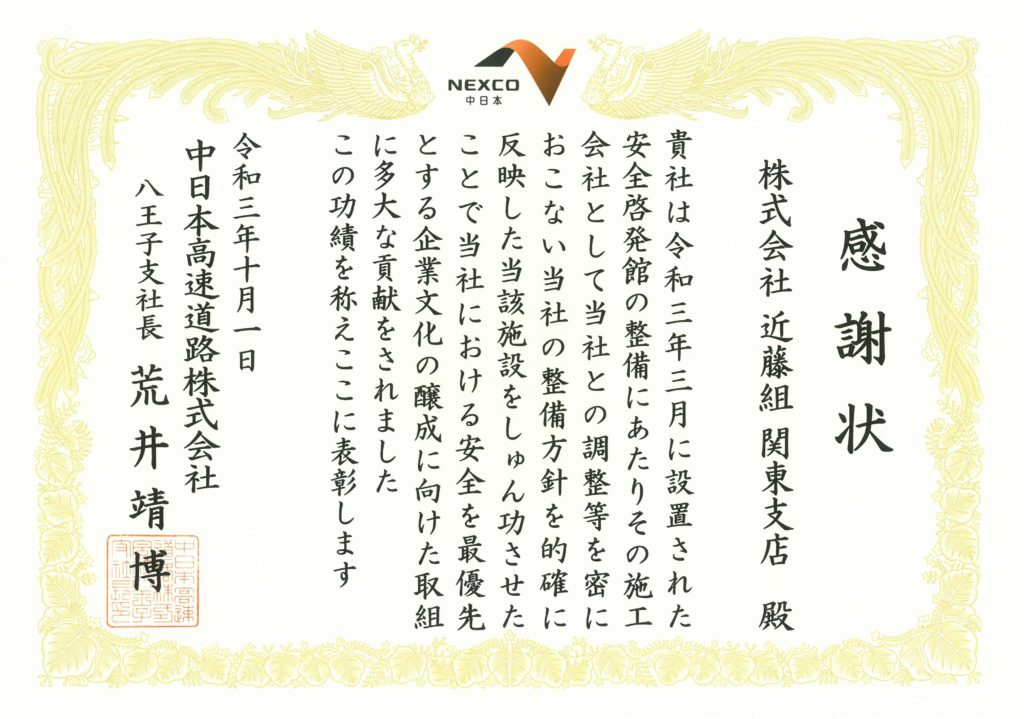 NEXCO
中日本
感謝状
株式会社 近藤組 関東支店 殿
貴社は令和三年三月に設置された
安全啓発館の整備にあたりその施工
会社として当社との調整等を密に
おこない当社の整備方針を的確に
反映した当該施設をしゅん功させた
ことで当社における安全を最優先
とする企業文化の醸成に向けた取組
に多大な貢献をされました
この功績を称えここに表彰します
令和三年十月一日
中日本高速道路株式会社
八王子支社長 荒井靖博